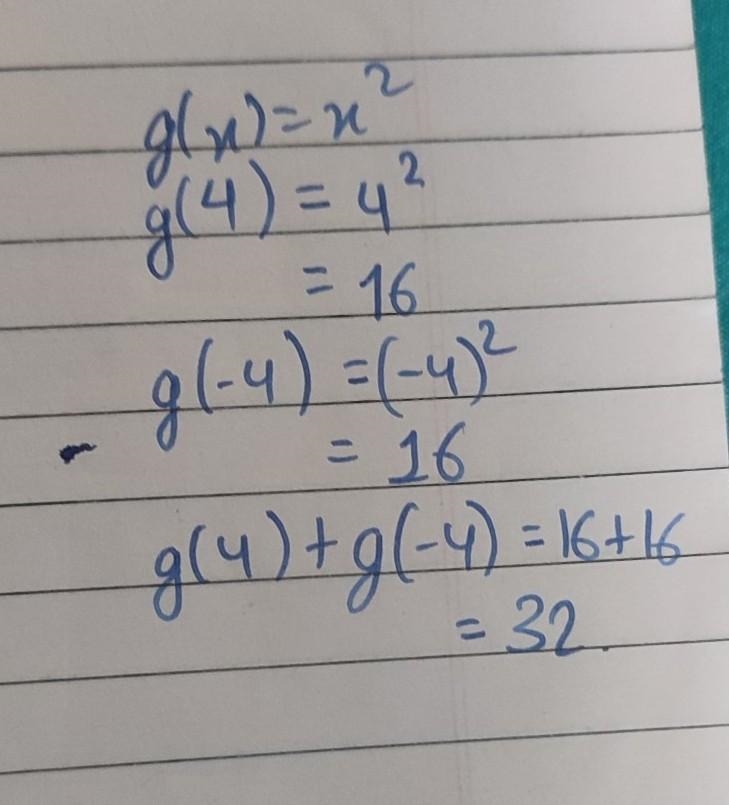 g(x)=x²
g(4) = 4²
= 16
g(-4) =(-4)²
= 16
g(4)+g(-4) =16+16
= 32.